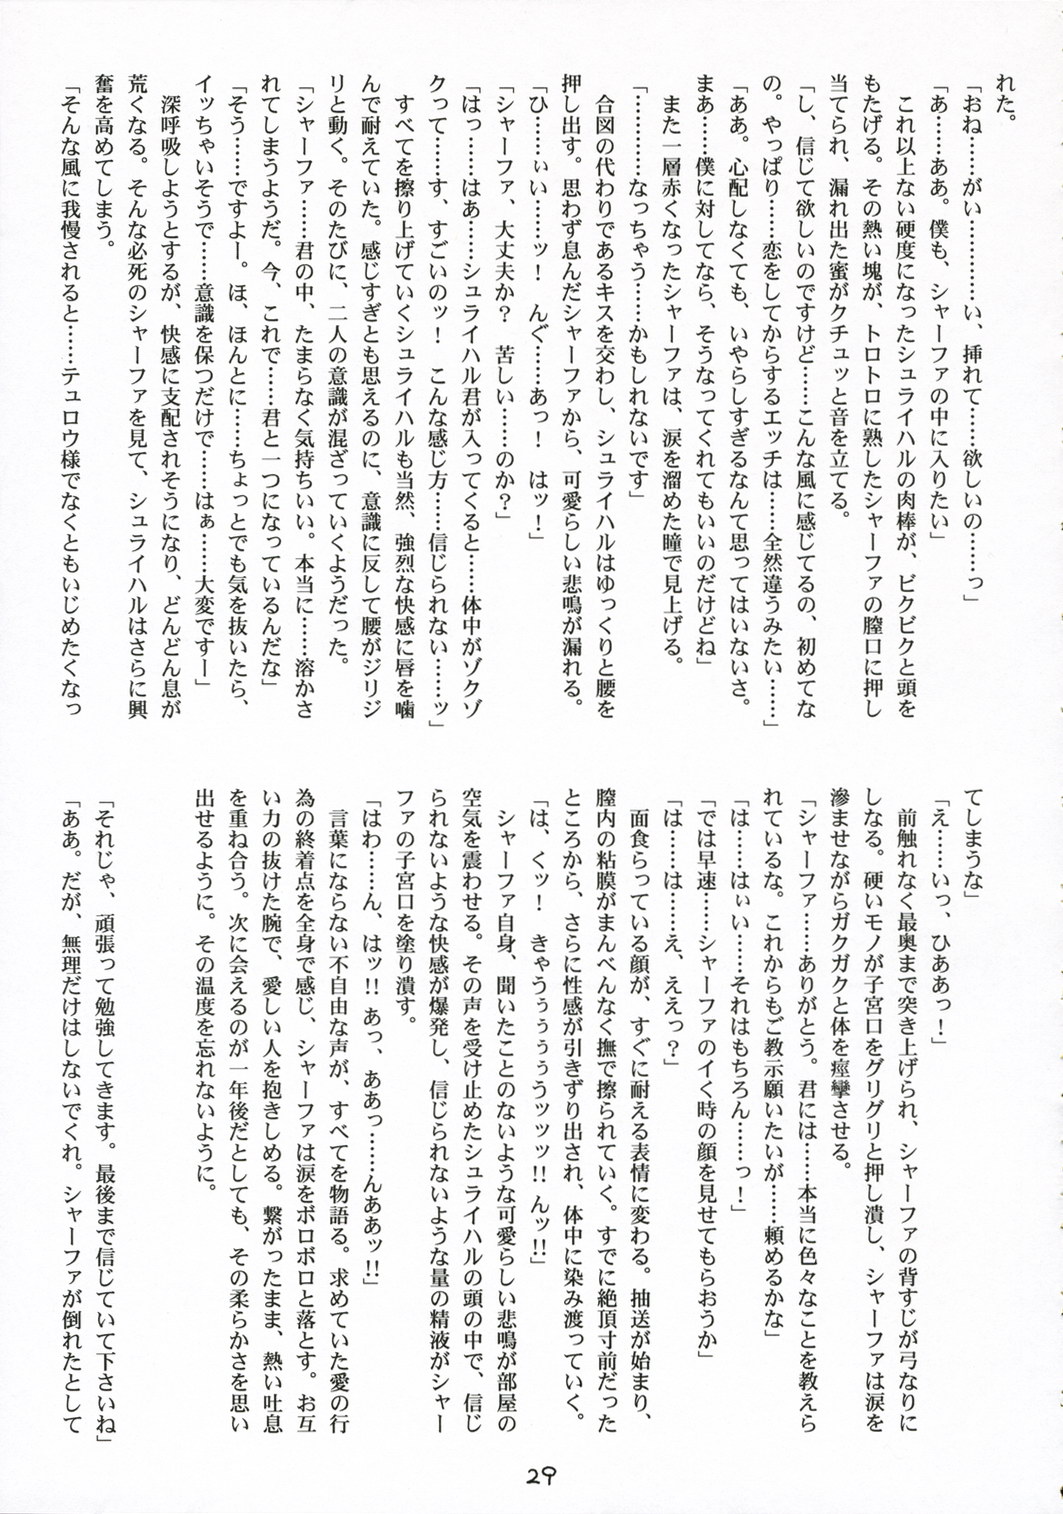 れた。
「おね……がい…………い、挿れて……欲しいの……っ」
「あ……ああ。僕も、シャーファの中に入りたい」
これ以上ない硬度になったシュライハルの肉棒が、ビクビクと頭を
もたげる。その熱い塊が、トロトロに熟したシャーファの膣口に押し
当てられ、漏れ出た蜜がクチュッと音を立てる。
「し、信じて欲しいのですけど……こんな風に感じてるの、初めてな
の。やっぱり……恋をしてからするエッチは……全然違うみたい……」
「ああ。心配しなくても、いやらしすぎるなんて思ってはいないさ。
まあ……僕に対してなら、そうなってくれてもいいのだけどね」
また一層赤くなったシャーファは、涙を溜めた瞳で見上げる。
「…………なっちゃう……かもしれないです」
合図の代わりであるキスを交わし、シュライハルはゆっくりと腰を
押し出す。思わず息んだシャーファから、可愛らしい悲鳴が漏れる。
「ひ……ぃい……ッ！　んぐ……あっ！　はッ！」
「シャーファ、大丈夫か？　苦しい……のか？」
「はっ……はあ……シュライハル君が入ってくると……体中がゾクゾ
クって……す、すごいのッ！　こんな感じ方……信じられない……ッ」
すべてを擦り上げていくシュライハルも当然、強烈な快感に唇を噛
んで耐えていた。感じすぎとも思えるのに、意識に反して腰がジリジ
リと動く。そのたびに、二人の意識が混ざっていくようだった。
「シャーファ……君の中、たまらなく気持ちいい。本当に……溶かさ
れてしまうようだ。今、これで……君と一つになっているんだな」
「そう……ですよー。ほ、ほんとに……ちょっとでも気を抜いたら、
イッちゃいそうで……意識を保つだけで……はぁ……大変ですー」
深呼吸しようとするが、快感に支配されそうになり、どんどん息が
荒くなる。そんな必死のシャーファを見て、シュライハルはさらに興
奮を高めてしまう。
「そんな風に我慢されると……テュロウ様でなくともいじめたくなっ
てしまうな」
「え……いっ、ひああっ！」
前触れなく最奥まで突き上げられ、シャーファの背すじが弓なりに
しなる。硬いモノが子宮口をグリグリと押し潰し、シャーファは涙を
滲ませながらガクガクと体を痙攣させる。
「シャーファ……ありがとう。君には……本当に色々なことを教えら
れているな。これからもご教示願いたいが……頼めるかな」
「は……はぃい……それはもちろん……っ！」
「では早速……シャーファのイく時の顔を見せてもらおうか」
「は……は……え、ええっ？」
面食らっている顔が、すぐに耐える表情に変わる。抽送が始まり、
膣内の粘膜がまんべんなく撫で擦られていく。すでに絶頂寸前だった
ところから、さらに性感が引きずり出され、体中に染み渡っていく。
「は、くッ！　きゃうぅぅぅぅうッッッ!! んッ!!」
シャーファ自身、聞いたことのないような可愛らしい悲鳴が部屋の
空気を震わせる。その声を受け止めたシュライハルの頭の中で、信じ
られないような快感が爆発し、信じられないような量の精液がシャー
ファの子宮口を塗り潰す。
「はわ……ん、はッ!! あっ、ああっ……んああッ!!」
言葉にならない不自由な声が、すべてを物語る。求めていた愛の行
為の終着点を全身で感じ、シャーファは涙をボロボロと落とす。お互
い力の抜けた腕で、愛しい人を抱きしめる。繋がったまま、熱い吐息
を重ね合う。次に会えるのが一年後だとしても、その柔らかさを思い
出せるように。その温度を忘れないように。
「それじゃ、頑張って勉強してきます。最後まで信じていて下さいね」
「ああ。だが、無理だけはしないでくれ。シャーファが倒れたとして
29